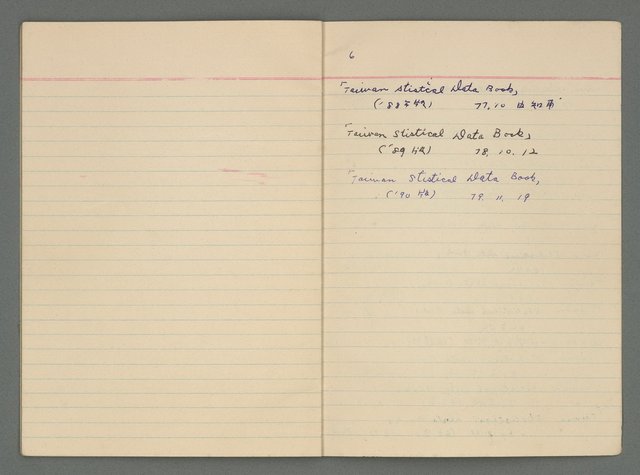 6
「Taiwan Stistical Data Book」
('88年版) 77.10
「Taiwan Stistical Data Book」
('89版) 78.10.12
「Taiwan Stistical Data Book」
('90版) 79.11.19